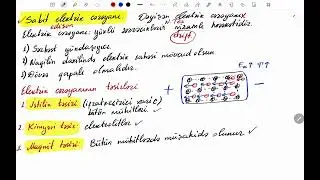 ✓ Sabit elektrik cərəyanı Dəyişən elektrik cərəyanı
Elektrik cərəyanı yüklü zərrəciklərin nizamlı hərəkətidir.
dreyf
1) Sərbəst yükdaşıyıcı
2) Naqilin daxilində elektrik sahəsi mövcud olsun
3) Dövrə qapalı olmalıdır.
Elektrik cərəyanının təsirləri
1. İstilik təsiri
bütün mühitləri
2. Kimyəvi təsir: elektrolitlər
3. Maqnit təsiri: Bütün mühitlərdə müşahidə olunur ✓
+ −